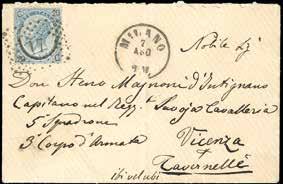 MILANO
7
AGO
Nobile Sg
Don Steno Magnone d'Intignano
Capitano nel Regg.t Savoja Cavalleria
5 Squadrone
3 Corpo d'Armata
Vicenza
Tavernelle
ibi velubi